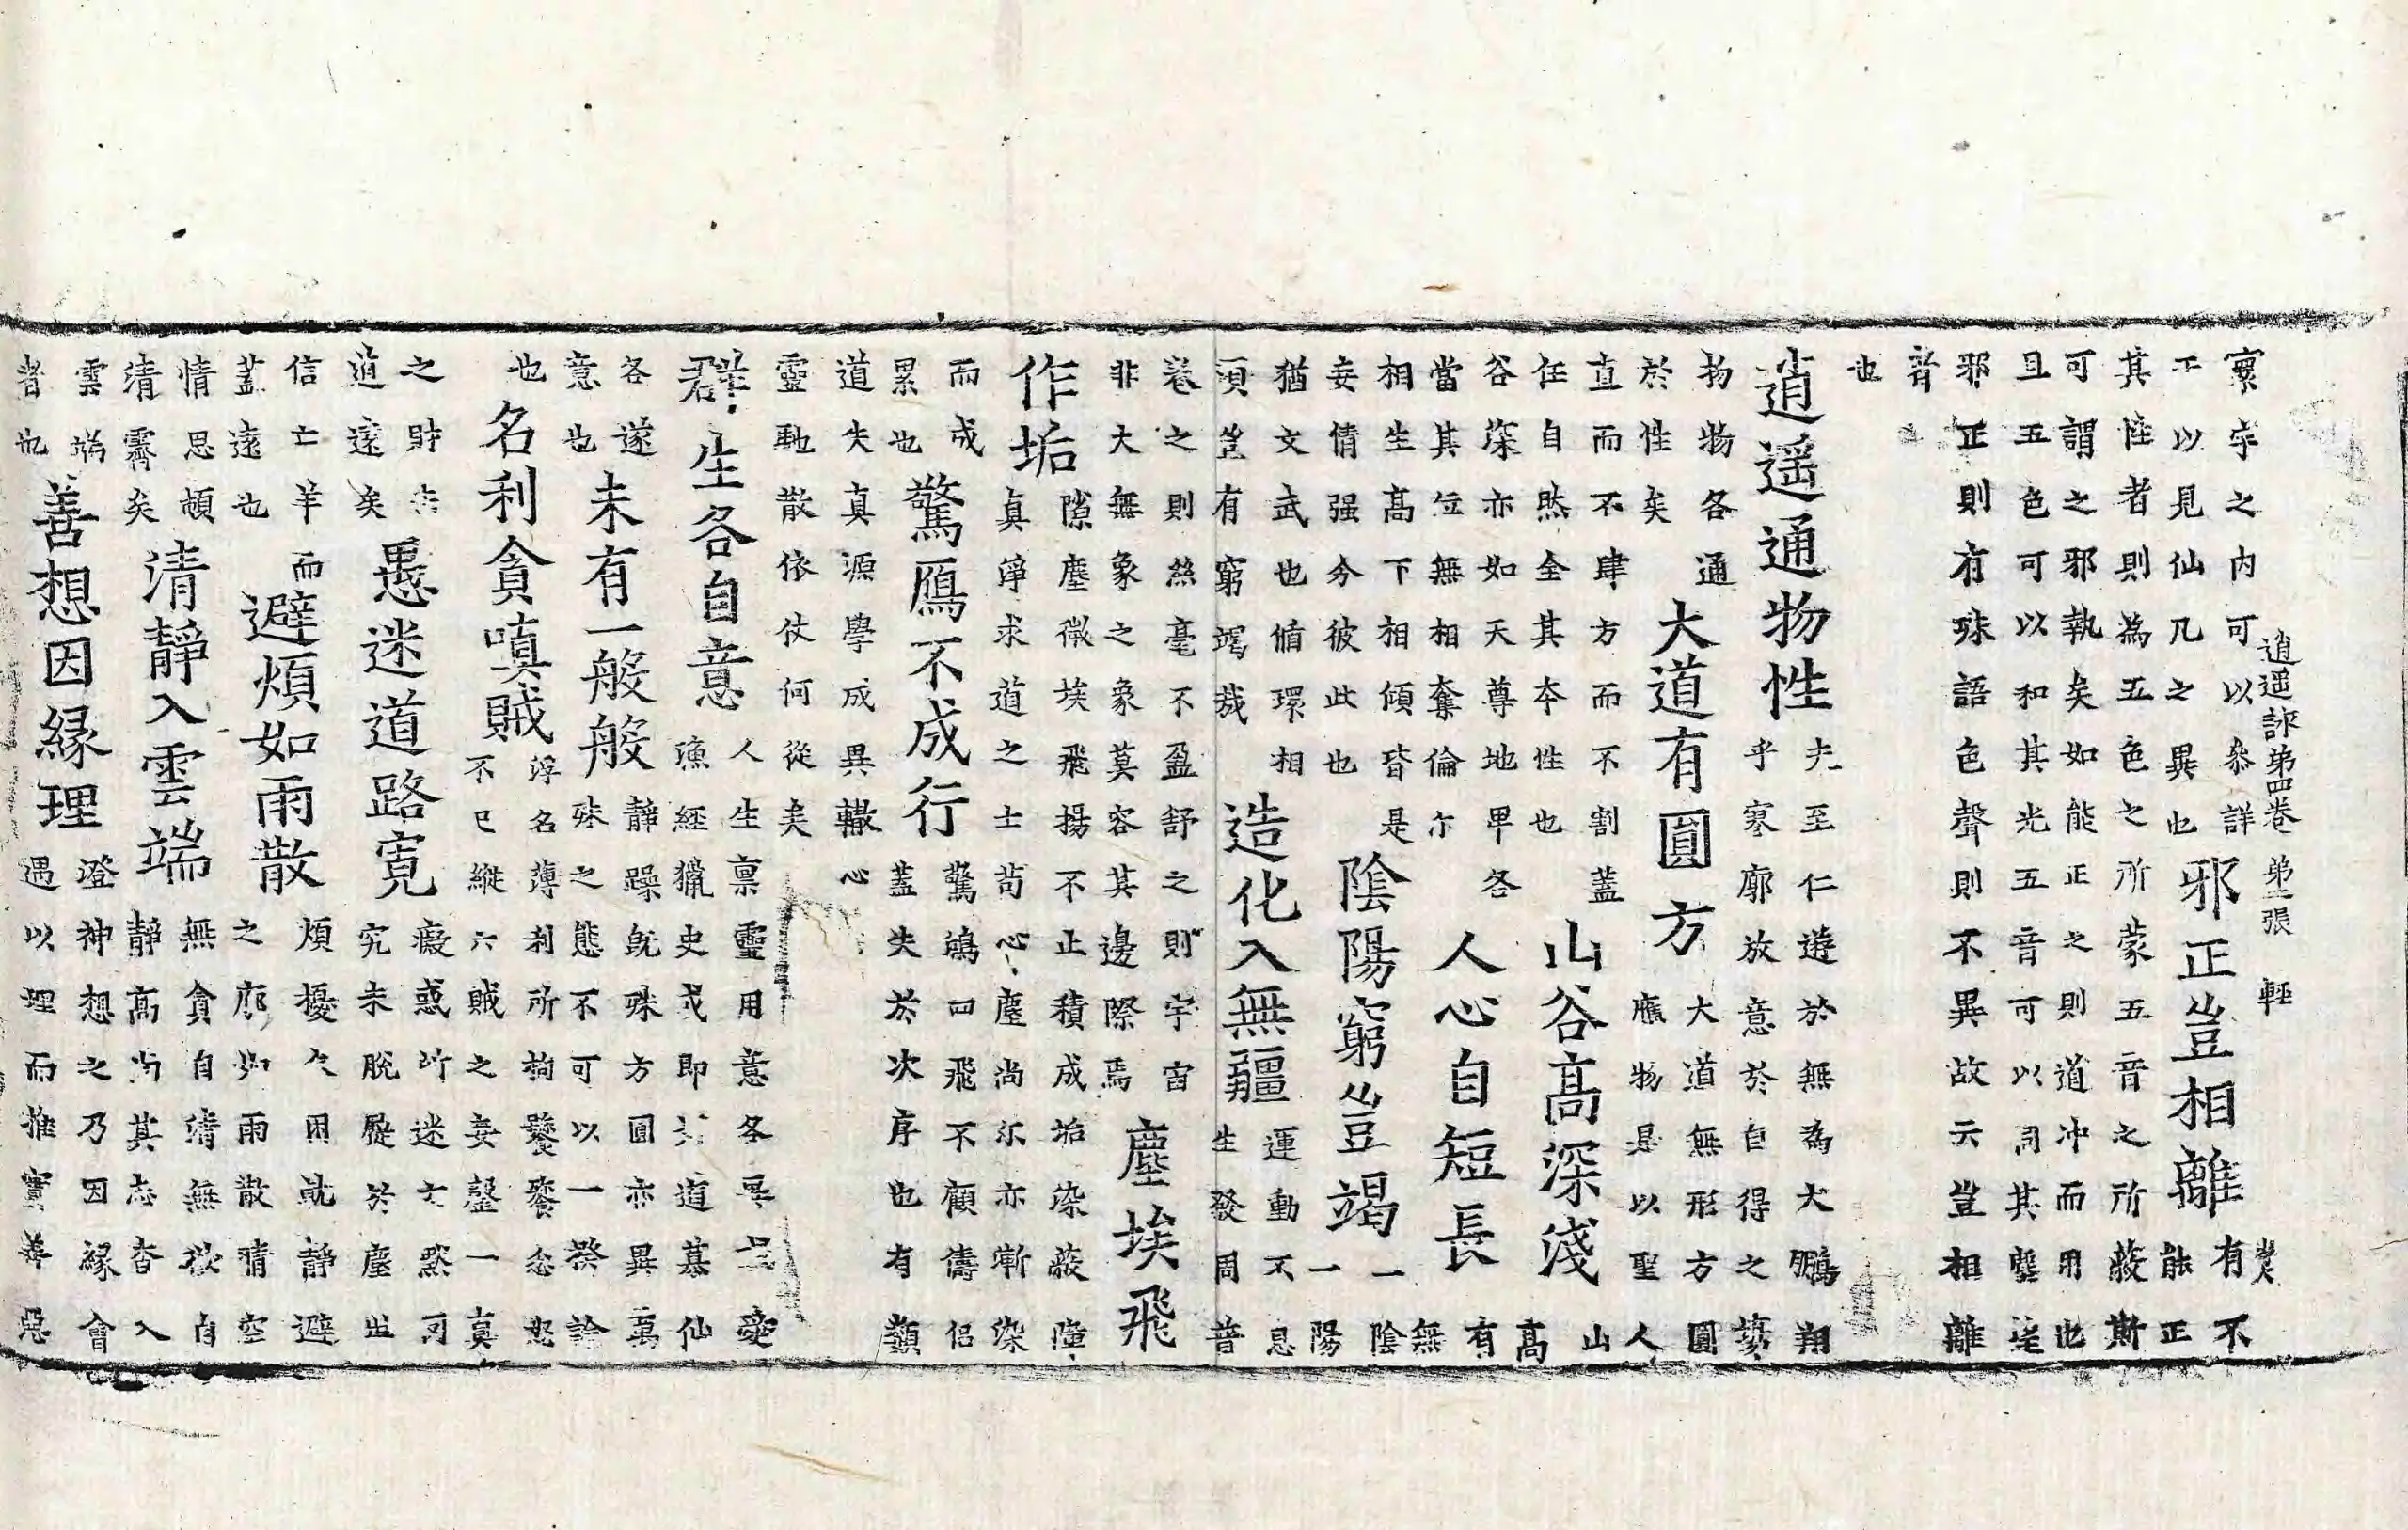 逍遥詠第四卷 第二張 輕
寰宇之内可以叅詳
不以見仙凡之異也
邪正豈相離
有不
能正
其性者則為五色之所蒙五音之所蔽斯
可謂之邪執矣如能正之則道冲而用也
且五色可以和其光五音可以同其塵
邪正則有殊語色聲則不異故云豈相離
者
也
逍遥通物性
夫至仁遊於無為大鵬翔
乎寥廓放意於自得之塲
物物各通
於性矣
大道有圓方
大道無形方圓
應物是以聖人
直而不肆方而不割蓋
任自然全其夲性也
山谷高深淺
山
高
谷深亦如天尊地卑各
當其位無相奪倫尒
人心自短長
有
無
相生高下相傾皆是
妄情强分彼此也
陰陽窮豈竭
一陰
一陽
猶文武也循環相
須豈有窮竭哉
造化入無疆
運動不息
生發周普
卷之則絲毫不盈舒之則宇宙
非大無象之象莫容其邊際焉
塵埃飛
作垢
隙塵微埃飛揚不止積成垢染蔽障
真淨求道之士苟心塵尚尒亦漸染
而成
累也
驚鴈不成行
驚鴻回飛不顧儔侣
蓋失於次序也有類
道失真源學成異轍心
靈馳散依仗何從矣
群生各自意
人生禀靈用意各異愛
漁經獵史或即道慕仙
各遂
意也
未有一般般
靜躁旣殊方圓亦異萬
殊之態不可以一槩論
也
名利貪嗔賊
浮名薄利所拘饕餮忿怒
不已縱六賊之妄鑿一真
之財去
道遠矣
愚迷道路寬
癡惑所迷士黙可
究未脫屣於塵世
信亡羊而
蓋遠也
避煩如雨散
煩擾久困就靜避
之廓如雨散晴空
情思頓
清霽矣
清靜入雲端
無貪自清無欲自
靜高尚其志杳入
雲端
者也
善想因緣理
澄神想之乃因緣會
遇以理而推實善惡